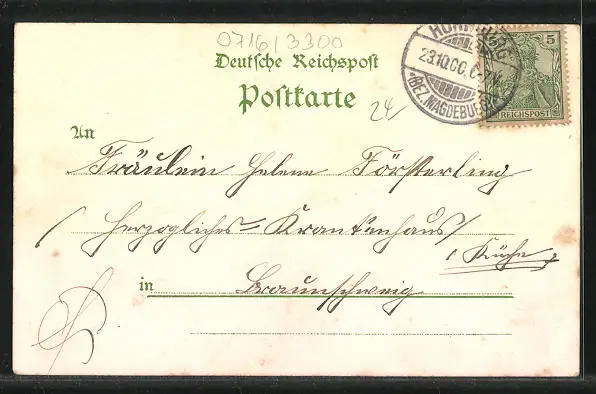 0716/3300
Deutsche Reichspost
Postkarte
24
HORNBURG
23.10.00. 6-7N.
(BEZ. MAGDEBURG)
5
REICHSPOST
An
Fräulein Helene Försterling
(Herzogliches=Krankenhaus)
(Küche)
in Braunschweig